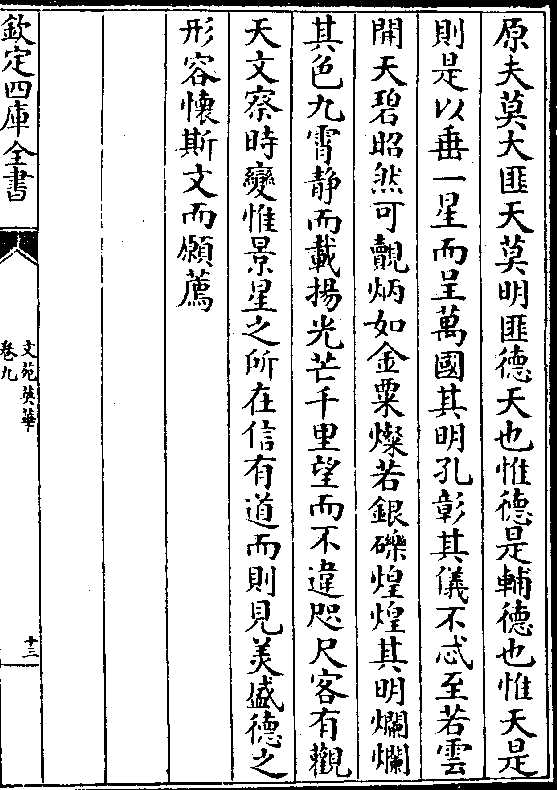 原夫莫大匪天莫明匪德天也惟德是輔德也惟天是
則是以垂一星而呈萬國其明孔彰其儀不忒至若雲
開天碧昭然可覿炳如金粟燦若銀礫煌煌其明爛爛
其色九霄静而載揚光芒千里望而不違咫尺客有觀
天文察時變惟景星之所在信有道而則見美盛德之
形容懷斯文而願薦
欽定四庫全書
文苑英華
卷九
十三